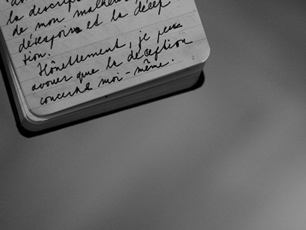 la descrip
de mon malheu
désespoir et la décep
tion.
Honêtement, je peux
avouer que la déception
concerne moi-même.